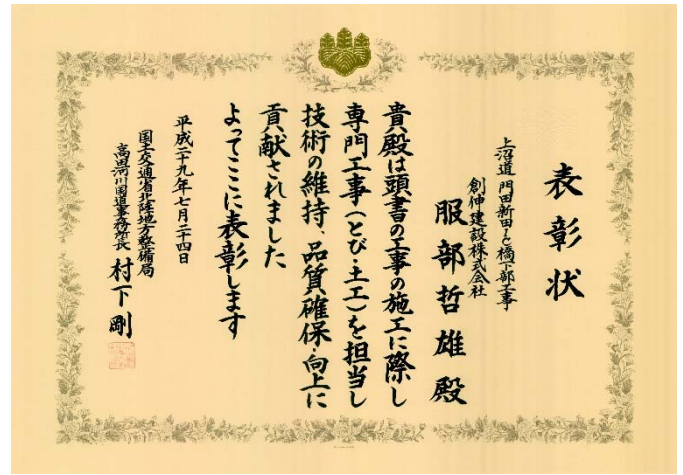 表彰状
上沼道 門田新田こ橋下部工事
創伸建設株式会社
服部哲雄殿
貴殿は頭書の工事の施工に際し
専門工事(とび・土工)を担当し
技術の維持、品質確保・向上に
貢献されました
よってここに表彰します
平成二十九年七月二十四日
国土交通省北陸地方整備局
高田河川国道事務所長 村下剛